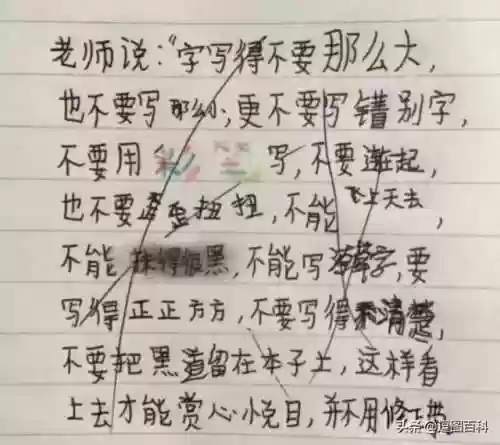 老师说:“字写得不要那么大,
也不要写那么小,更不要写错别字,
不要用彩笔写,不要连起,
也不要歪歪扭扭,不能飞上天去,
不能抹得很黑,不能写草字,要
写得正正方方,不要写得不清楚,
不要把黑道留在本子上,这样看
上去才能赏心悦目,并不用修
头条 @追图百科